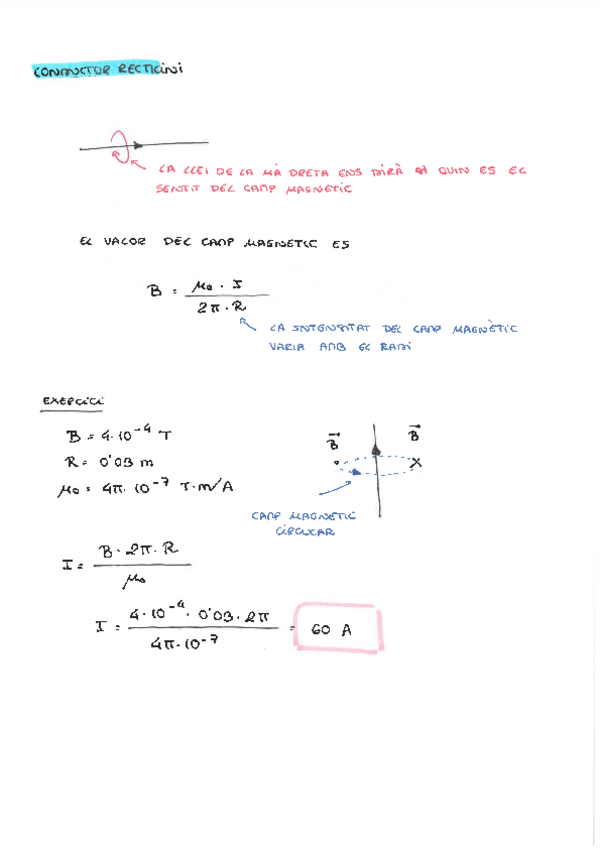 CONDUCTOR RECTILINI
LA LLEI DE LA MÀ DRETA ENS DIRÀ QUIN ES EL
SENTIT DEL CAMP MAGNÈTIC
EL VALOR DEL CAMP MAGNÈTIC ES
B = μ₀ · I / 2π · R
LA INTENSITAT DEL CAMP MAGNÈTIC
VARIA AMB EL RADI
EXERCICI
B = 4·10⁻⁴ T
R = 0'03 m
μ₀ = 4π·10⁻⁷ T·m/A
B⃗ B⃗
CAMP MAGNÈTIC
CIRCULAR
I = B · 2π · R / μ₀
I = 4·10⁻⁴ · 0'03 · 2π / 4π·10⁻⁷ = 60 A